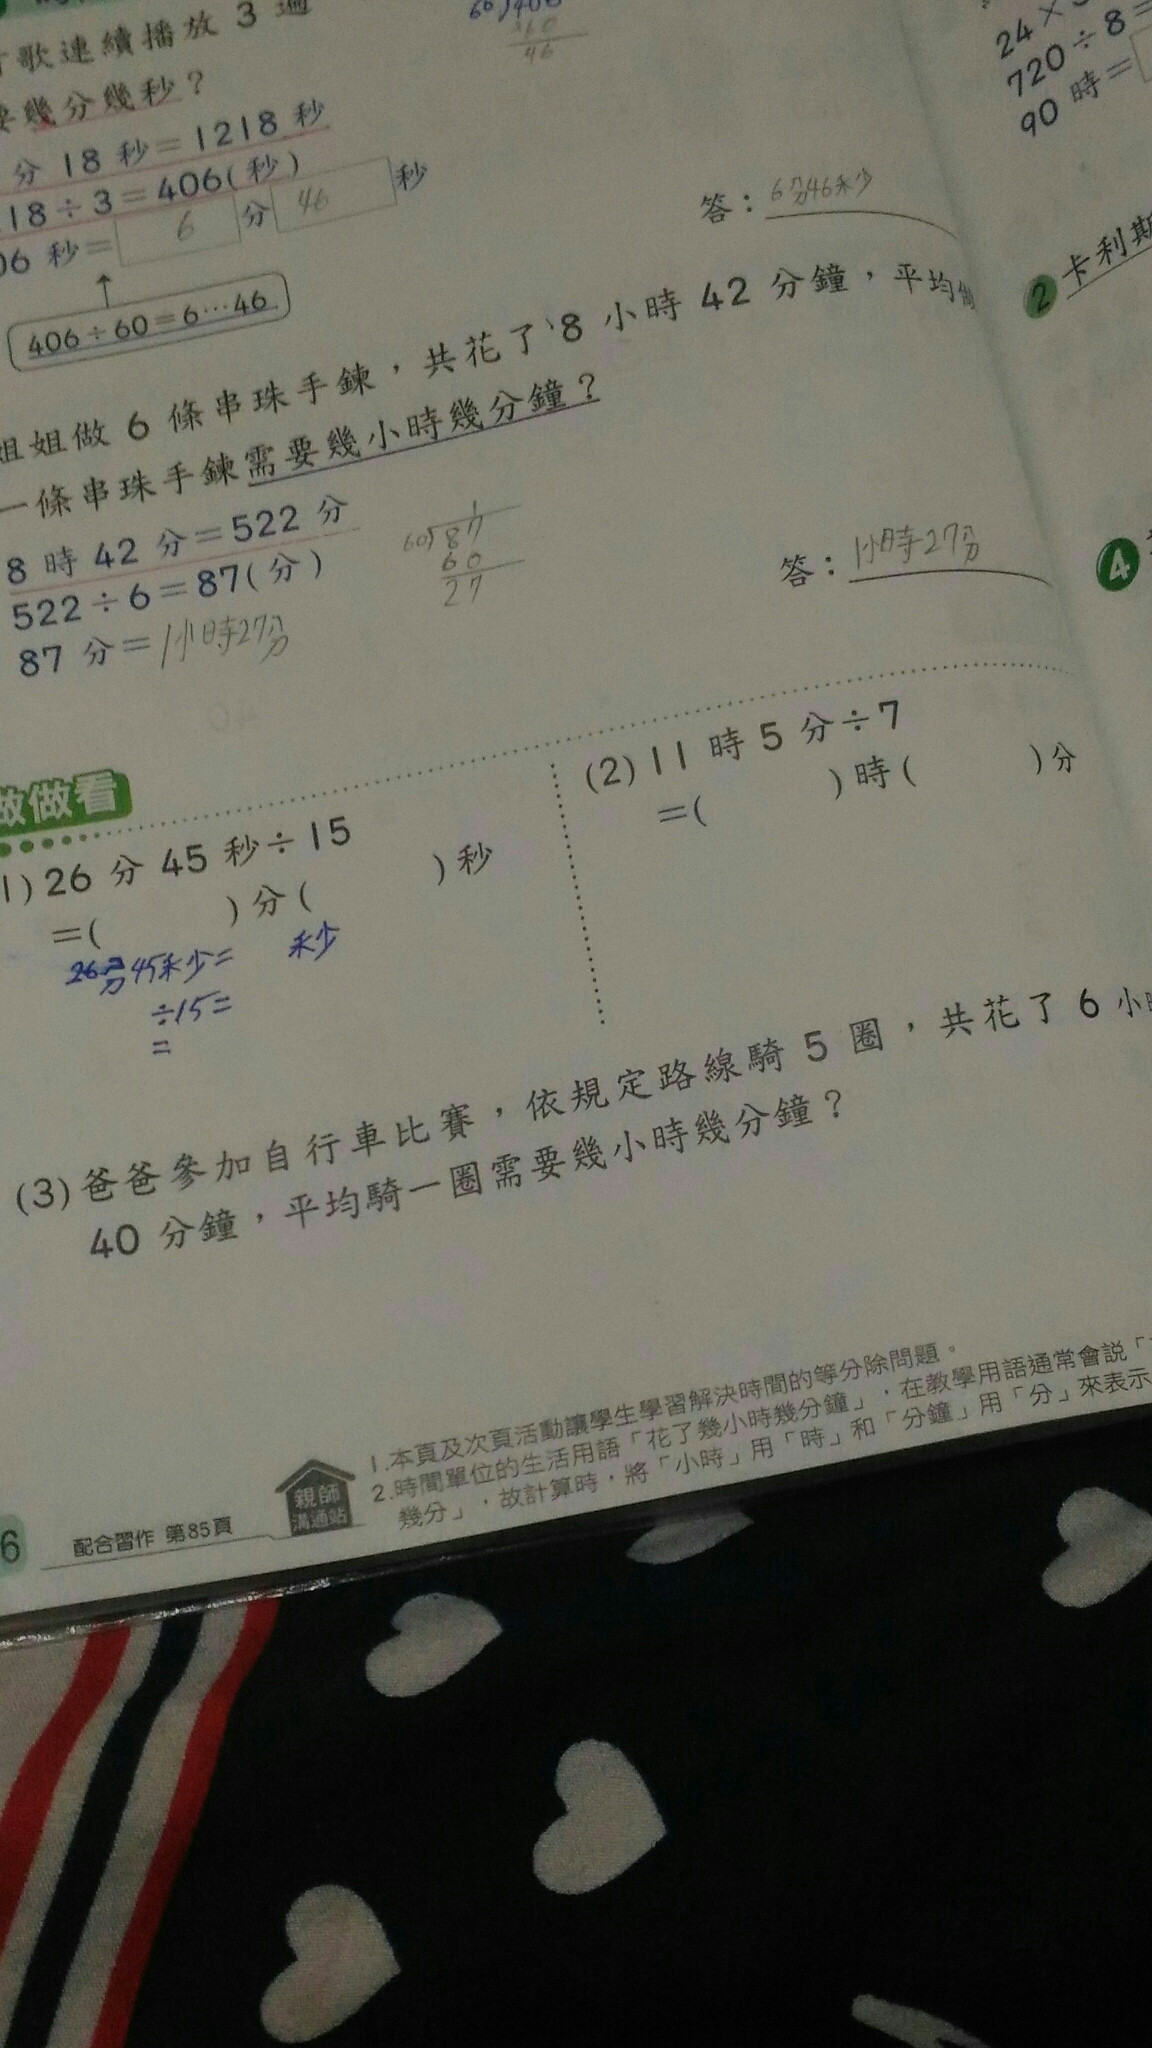 歌連續播放 3 遍
幾分幾秒？
分 18 秒＝1218 秒
18÷3＝406(秒)
06 秒＝ 6 分 46 秒
406÷60＝6…46
60 406
46
答：6分46秒
姐姐做 6 條串珠手鍊，共花了 8 小時 42 分鐘，平均
一條串珠手鍊需要幾小時幾分鐘？
8 時 42 分＝522 分
522÷6＝87(分)
87 分＝1小時27分
1
60 87
60
27
答：1小時27分
做做看
1)26 分 45 秒÷15
＝( )分( )秒
26分45秒＝ 秒
÷15＝
＝
(2)11 時 5 分÷7
＝( )時( )分
(3)爸爸參加自行車比賽，依規定路線騎 5 圈，共花了 6 小
40 分鐘，平均騎一圈需要幾小時幾分鐘？
親師
溝通站
1.本頁及次頁活動讓學生學習解決時間的等分除問題。
2.時間單位的生活用語「花了幾小時幾分鐘」，在教學用語通常會說「
幾分」，故計算時，將「小時」用「時」和「分鐘」用「分」來表示
6
配合習作 第85頁
24×
720÷8＝
90 時＝
2 卡利斯
4